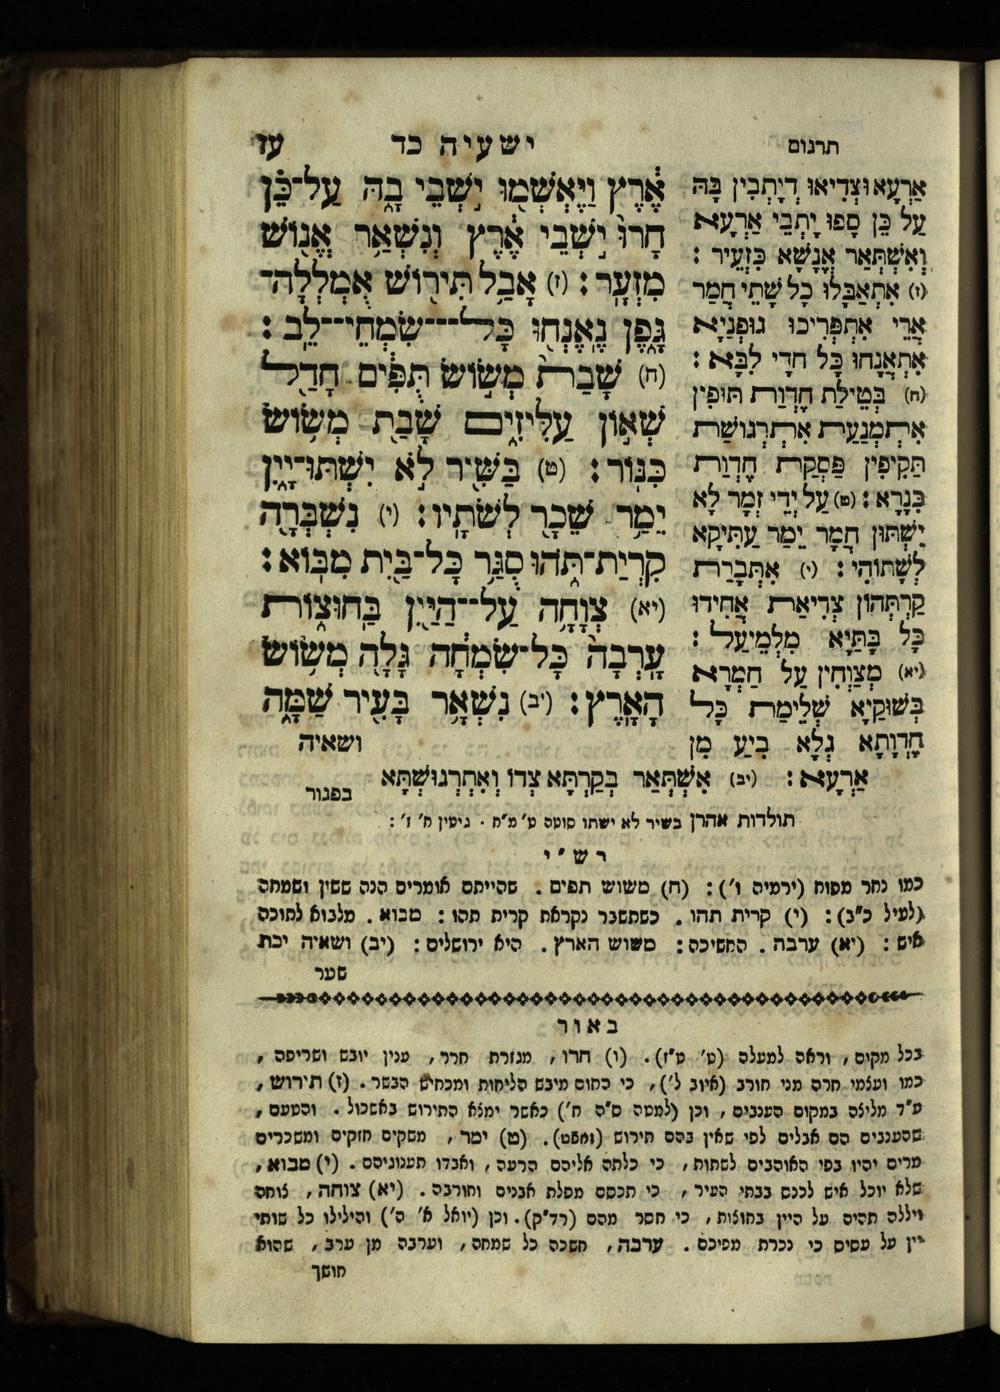 תרגום
ישעיה כד
עז
אֶ֔רֶץ וַיֶּאְשְׁמ֖וּ יֹ֣שְׁבֵי בָ֑הּ עַל־כֵּ֗ן
חָרוּ֙ יֹ֣שְׁבֵי אֶ֔רֶץ וְנִשְׁאַ֥ר אֱנ֖וֹשׁ
מִזְעָֽר׃ (ז) אָבַ֥ל תִּיר֖וֹשׁ אֻמְלְלָה־
גָ֑פֶן נֶאֶנְח֖וּ כָּל־שִׂמְחֵי־לֵֽב׃
(ח) שָׁבַת֙ מְשׂ֣וֹשׂ תֻּפִּ֔ים חָדַ֖ל
שְׁא֣וֹן עַלִּיזִ֑ים שָׁבַ֖ת מְשׂ֥וֹשׂ
כִּנּֽוֹר׃ (ט) בַּשִּׁ֖יר לֹ֣א יִשְׁתּוּ־יָ֑יִן
יֵמַ֥ר שֵׁכָ֖ר לְשֹׁתָֽיו׃ (י) נִשְׁבְּרָ֖ה
קִרְיַת־תֹּ֑הוּ סֻגַּ֥ר כָּל־בַּ֖יִת מִבּֽוֹא׃
(יא) צְוָחָ֥ה עַל־הַיַּ֖יִן בַּֽחוּצ֑וֹת
עָֽרְבָה֙ כָּל־שִׂמְחָ֔ה גָּלָ֖ה מְשׂ֥וֹשׂ
הָאָֽרֶץ׃ (יב) נִשְׁאַ֥ר בָּעִ֖יר שַׁמָּ֑ה
ושאיה
אַרְעָא וּצְדִיאוּ דְיָתְבִין בָּהּ
עַל כֵּן סָפוּ יָתְבֵי אַרְעָא
וְאִשְׁתְּאַר אֱנָשָׁא כִּזְעֵיר׃
(ז) אִתְאַבָּלוּ כָל שָׁתֵי חֲמַר
אֲרֵי אִתְפְּרִיכוּ גוּפְנַיָא
אִתְאֲנָחוּ כָּל חֲדֵי לִבָּא׃
(ח) בְּטֵילַת חֶדְוַת תּוּפִין
אִתְמְנַעַת אִתְרְגוּשַׁת
תַּקִיפִין פַּסְקַת חֶדְוַת
כִּנָרָא׃ (ט) עַל יְדֵי זְמָר לָא
יִשְׁתּוּן חֲמָר יֵמַר עַתִּיקָא
לְשָׁתוֹהִי׃ (י) אִתְּבָרַת
קַרְתְּהוֹן צְדִיאַת אֲחִידוּ
כָּל בָּתַּיָא מִלְמֵיעַל׃
(יא) מְצַוְחִין עַל חַמְרָא
בְּשׁוּקַיָא שְׁלֵימַת כָּל
חֶדְוָתָא גְלָא בֵיעַ מִן
אַרְעָא׃ (יב) אִשְׁתְּאַר בְּקַרְתָּא צְדוּ וְאִתְרְגוּשְׁתָּא
בפגור
תולדות אהרן בשיר לא ישתו סוטה ט׳ מ״ח . גיטין ח׳ ז׳ :
רש״י
כמו נחר מפוח (ירמיה ו׳): (ח) משוש תפים . שהייתם אומרים הנה ששון ושמחה
(לעיל כ״ב): (י) קרית תהו . כשתשבר נקראת קרית תהו : מבוא . מלבוא לתוכה
איש : (יא) ערבה . החשיכה : משוש הארץ . היא ירושלים : (יב) ושאיה יכת
שער
באור
בכל מקום , וראה למעלה (ט׳ ט״ז). (ו) חרו , מגזרת חרר , ענין יובש ושריפה ,
כמו ועצמי חרה מני חורב (איוב ל׳), כי החום מיבש הליחות ומכחיש הבשר . (ז) תירוש ,
ע״ד מליצה במקום הענבים , וכן (למטה ס״ה ח׳) כאשר ימצא התירוש באשכול . והטעם ,
שהענבים הם אבלים לפי שאין בהם תירוש . (ט) ימר , משקים חזקים ומשכרים
מרים יהיו בפי האוהבים לשתות , כי כלתה אליהם הרעה , ואבדו תענוגיהם . (י) מבוא ,
שלא יוכל איש לכנס בבתי העיר , כי תכסם מפלת אבנים וחורבה . (יא) צוחה , צוחה
ויללה תהיה על היין בחוצות , כי חסר מהם (רד״ק). וכן (יואל א׳ ה׳) והילילו כל שותי
יין על עסיס כי נכרת מפיכם . ערבה , חשכה כל שמחה , וערבה מן ערב , שהוא
חושך